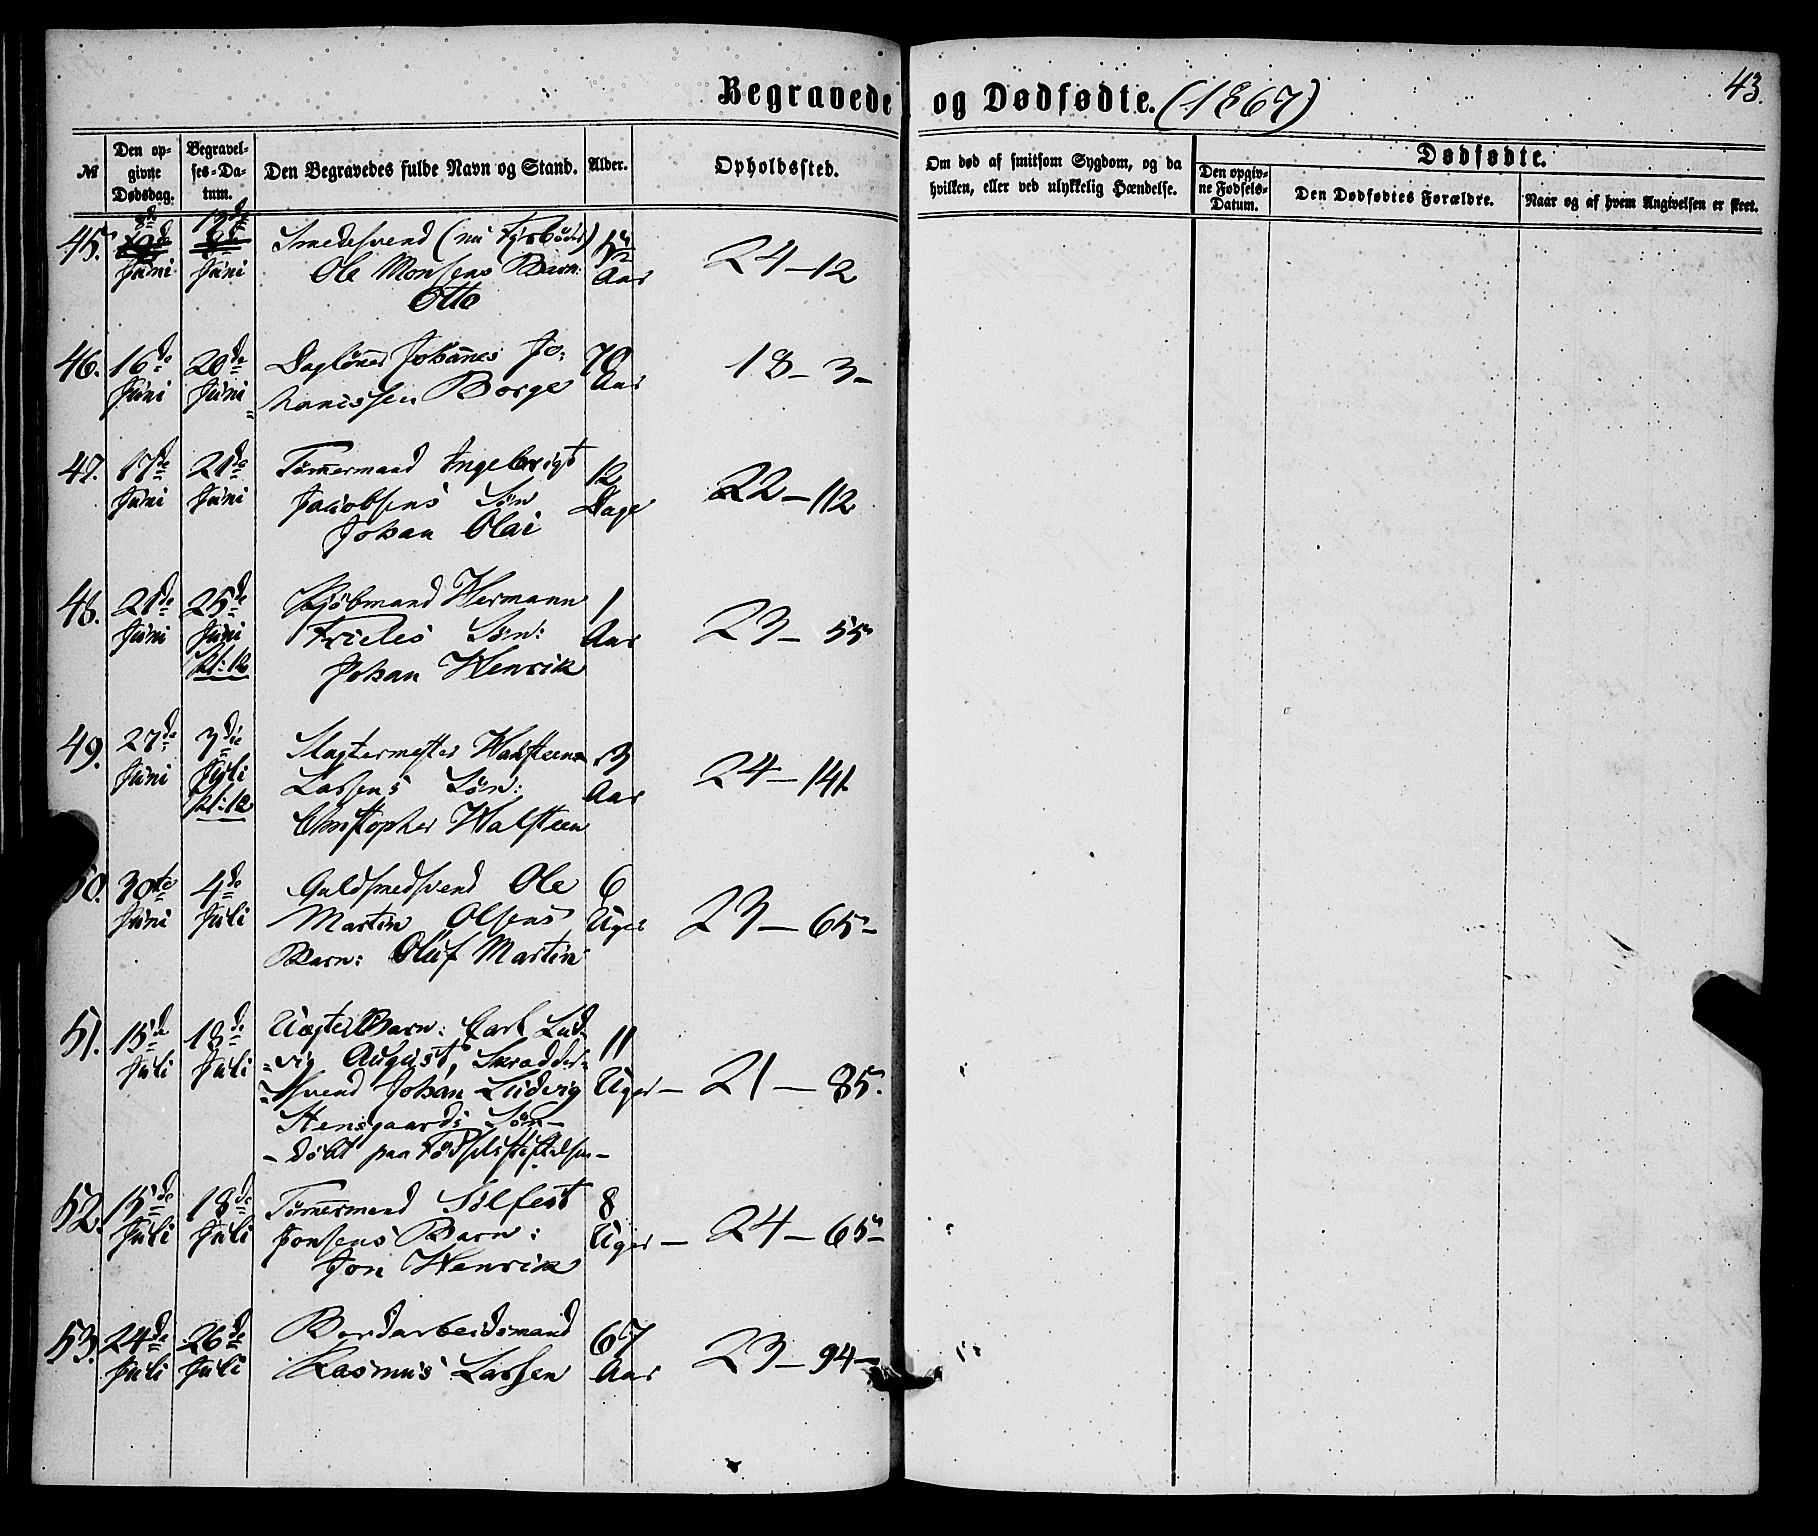 Begravede og Dødfødte. (1867)
43.
№
Den opgivne Dødsdag.
Begravelses-Datum.
Den Begravedes fulde Navn og Stand.
Alder.
Opholdssted.
Om død af smitsom Sygdom, og da hvilken, eller ved ulykkelig Hændelse.
Dødfødte.
Den opgivne Fødsels-Datum.
Den Dødfødtes Forældre.
Naar og af hvem Angivelsen er skeet.
45. Juni Juni Smedesvend (nu Fyrbøder) 24-12
Ole Monsens Barn: Aar
Otto
46. 16de 20de Dagløner Johannes Jo: 70 18-3-
Juni Juni hannissen Borge Aar
47. 17de 21de Tømermand Ingebrigt 12 22-112
Juni Juni Jacobsens Søn Dage
Johan Olai
48. 21de 25de Kjøbmand Hermann 1 23-55
Juni Juni Frieles Søn: Aar
kl: 12 Johan Henrik
49. 27de 3die Slagtermester 3 24-141
Juni Juli Larsens Søn: Aar
kl: 12 Christopher Walsteen
50. 30te 4de Guldsmedsvend Ole 6 23-65-
Juni Juli Martin Olsens Uger
Barn: Oluf Martin
51. 15de 18de Uægte Barn: Carl Lud- 11
Juli Juli -vig August, Skrædder- Uger- 21-85.
-svend Johan Ludvig
Stensgaards Søn-
-døbt paa Fødselsstiftelsen-
52. 15de 18de Tømermand Sølfest 8 24-65-
Juli Juli Jonsens Barn: Uger-
Jon Henrik
53. 24de 26de Bordarbeidsmand 67 23-94-
Juli Juli Rasmus Larsen Aar